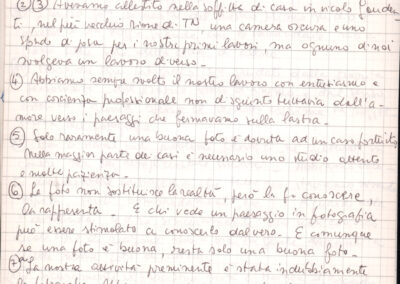 ② ③ Avevamo allestito nella soffitta di casa in vicolo Gauden-
ti, nel più vecchio rione di TN, una camera oscura e uno
sala di posa per i nostri primi lavori, ma ognuno di noi
svolgeva un lavoro diverso.
④ Abbiamo sempre svolto il nostro lavoro con entusiasmo e
con coscienza professionale non disgiunti tuttavia dall'a-
more verso i paesaggi che fermavamo sulla lastra.
⑤ Solo raramente una buona foto è dovuta ad un caso fortuito,
nella maggior parte dei casi è necessario uno studio attento
e molta pazienza.
⑥ La foto non sostituisce la realtà, però la fa conoscere,
la rappresenta. E chi vede un paesaggio in fotografia
può essere stimolato a conoscerlo dal vero. E comunque
se una foto è buona, resta solo una buona foto.
⑦ La nostra attività preminente è stata indubbiamente